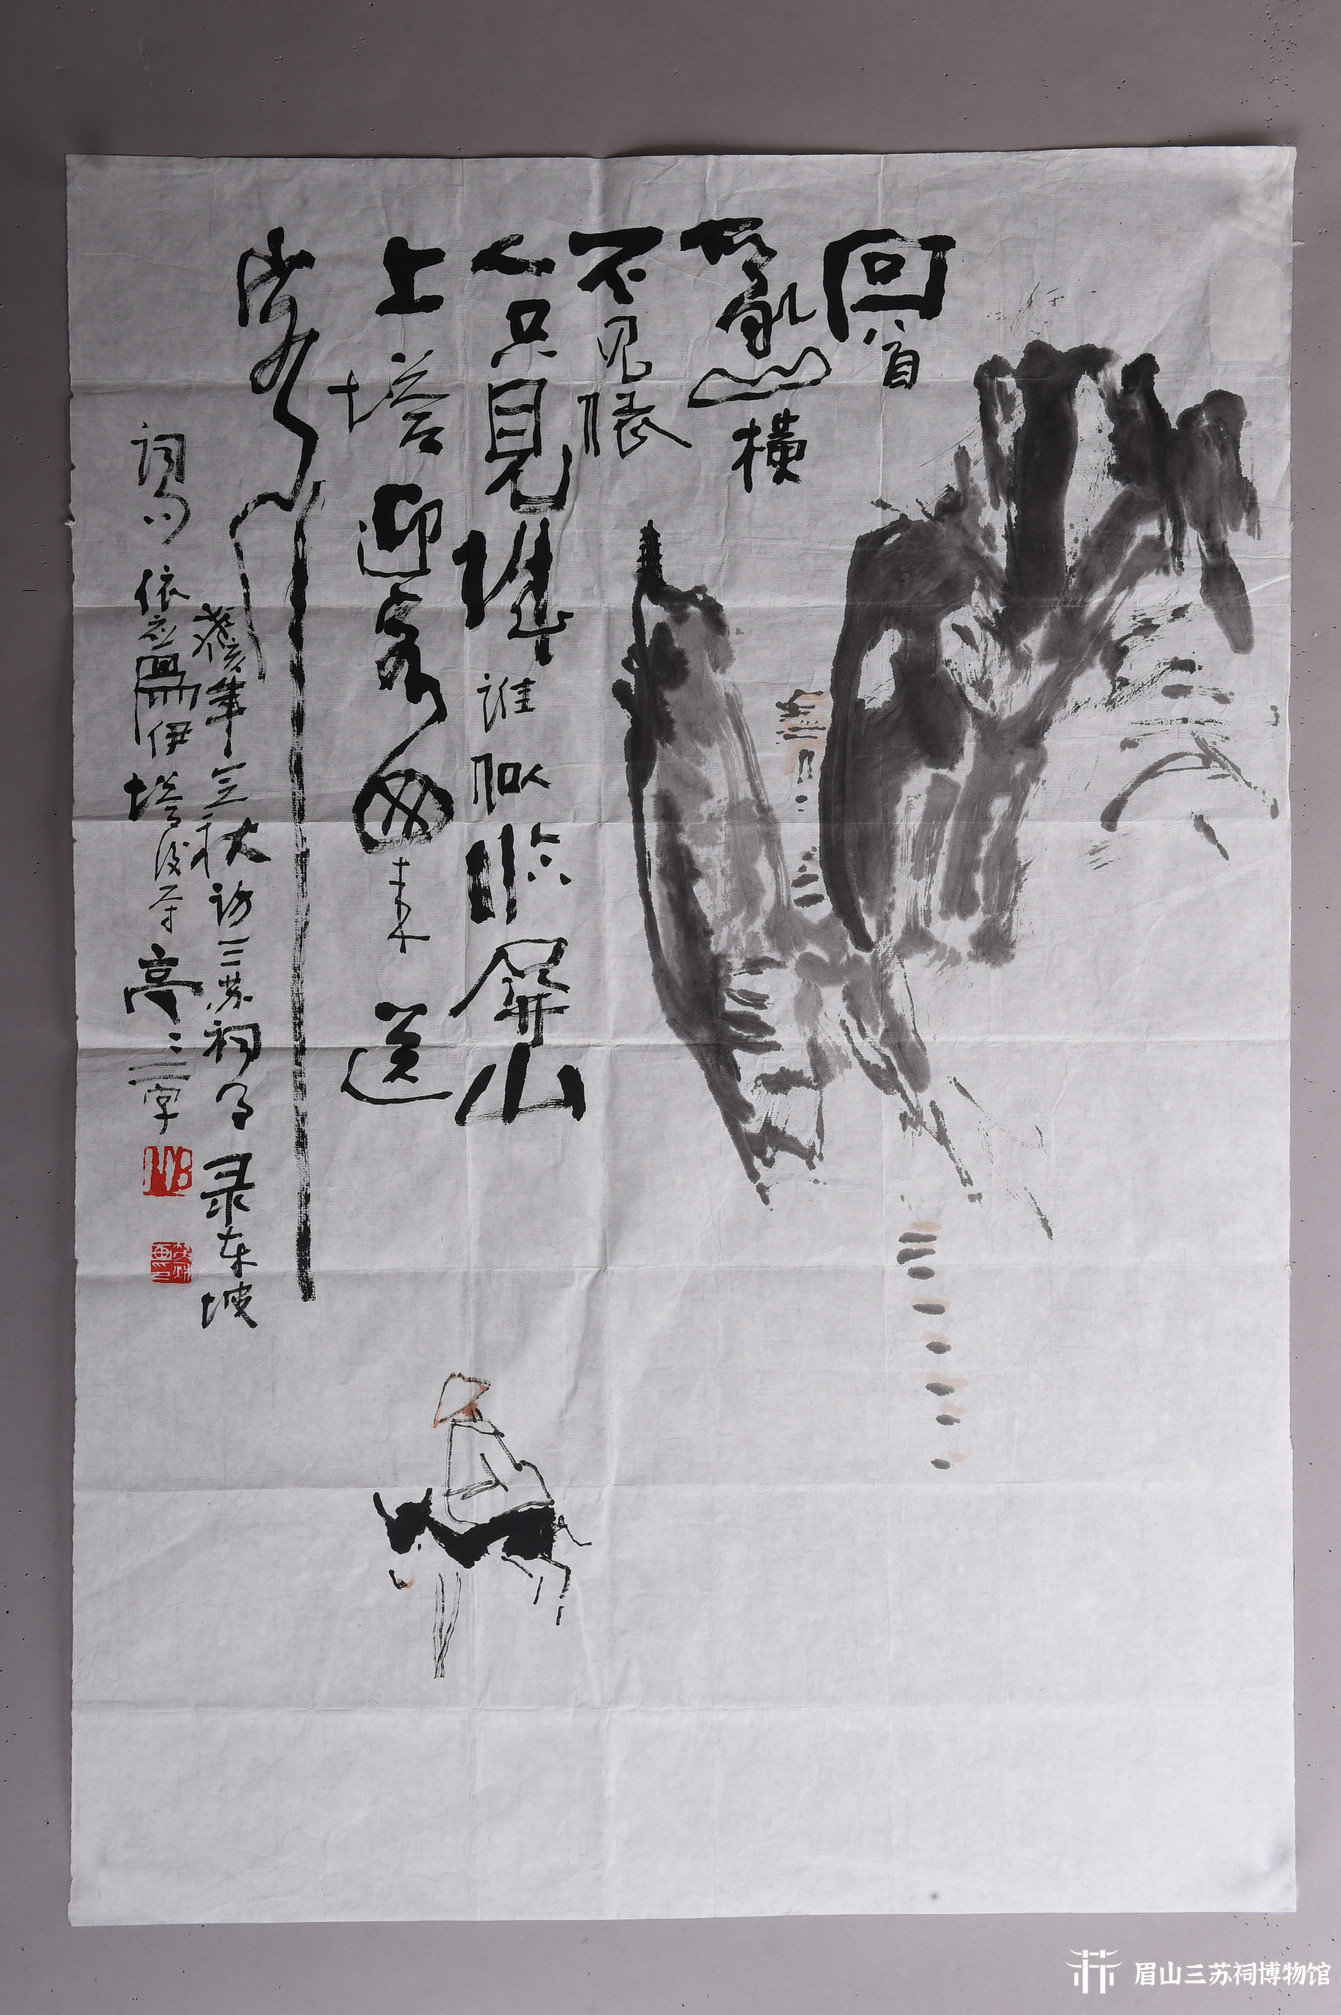 回首
亂山横
不见居
人只見城谁似临屏山
上塔迎客西来送
客行
癸亥年立秋访三苏祠 录东坡
词 依 伊塔後 亭二字
眉山三苏祠博物馆